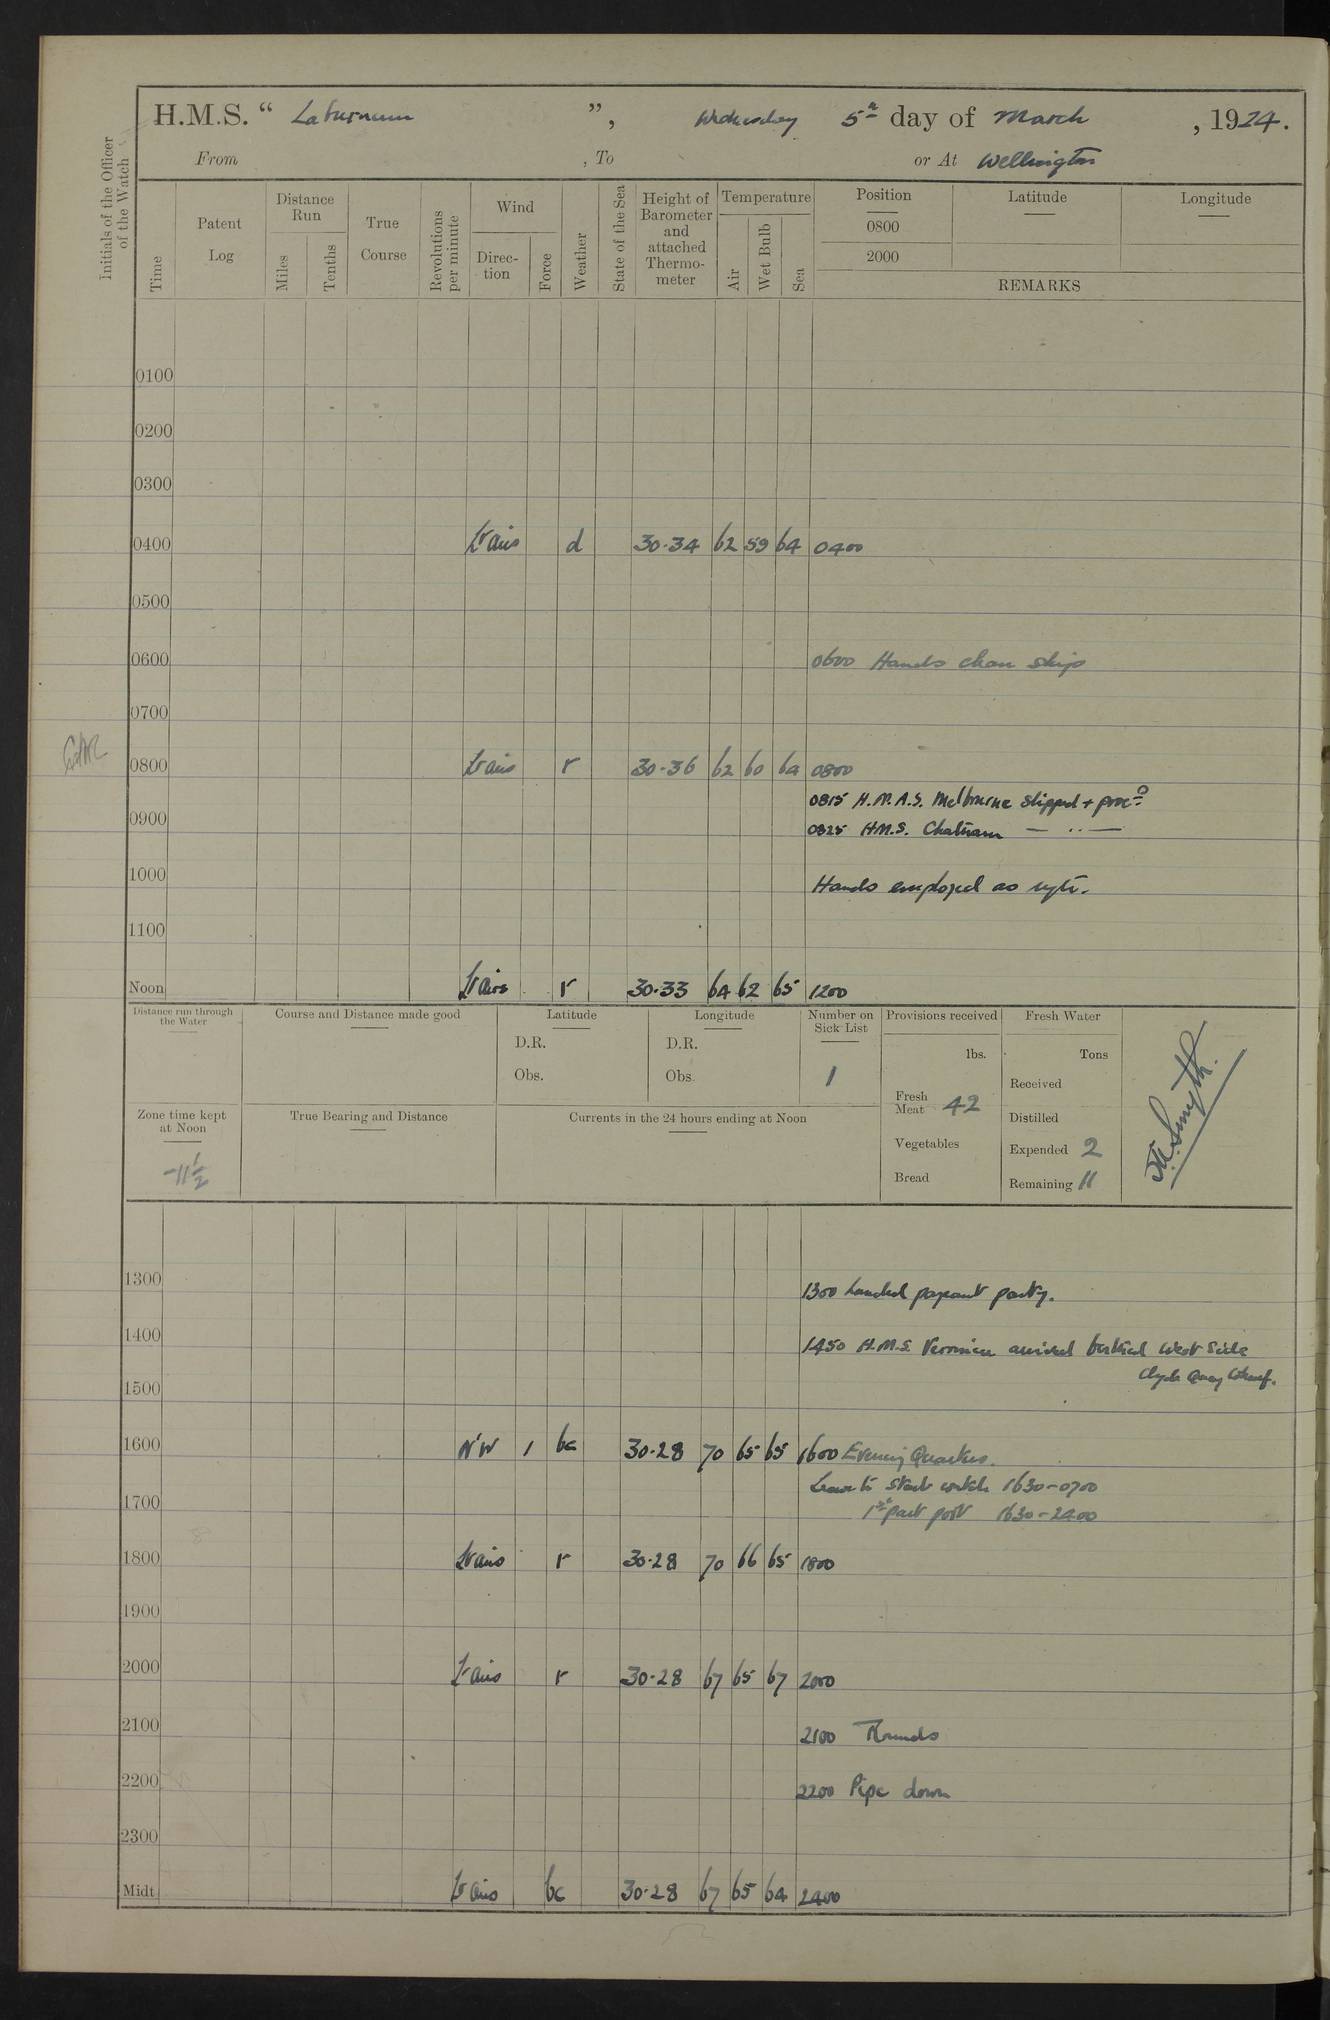 H.M.S. “ Laburnum ”, Wednesday 5th day of March , 1924.
From , To or At Wellington
Initials of the Officer of the Watch
Time
Patent Log
Distance Run
Miles
Tenths
True Course
Revolutions per minute
Wind
Direction
Force
Weather
State of the Sea
Height of Barometer and attached Thermometer
Temperature
Air
Wet Bulb
Sea
Position Latitude Longitude
0800
2000
REMARKS
0100
0200
0300
0400 Lt airs d 30·34 62 59 64 0400
0500
0600 0600 Hands clean ship
0700
0800 Lt airs r 30·36 62 60 64 0800
0815 H.M.A.S. Melbourne slipped + procd
0900 0825 H.M.S. Chatham — ·· —
1000 Hands employed as reqte.
1100
Noon Lt airs r 30·33 64 62 65 1200
Distance run through the Water
Course and Distance made good
Latitude
D.R.
Obs.
Longitude
D.R.
Obs.
Number on Sick List
1
Provisions received
lbs.
Fresh Meat 42
Vegetables
Bread
Fresh Water
Tons
Received
Distilled
Expended 2
Remaining 11
Smyth.
Zone time kept at Noon
-11½
True Bearing and Distance
Currents in the 24 hours ending at Noon
1300 1300 Landed pageant party.
1400 1450 H.M.S. Veronica arrived berthed West Side
Clyde Quay Wharf.
1500
1600 NW 1 bc 30·28 70 65 65 1600 Evening Quarters.
Leave to Starb watch 1630-0700
1700 1st part port 1630-2400
1800 Lt airs r 30·28 70 66 65 1800
1900
2000 Lt airs r 30·28 67 65 67 2000
2100 2100 Rounds
2200 2200 Pipe down
2300
Midt. Lt airs bc 30·28 67 65 64 2400